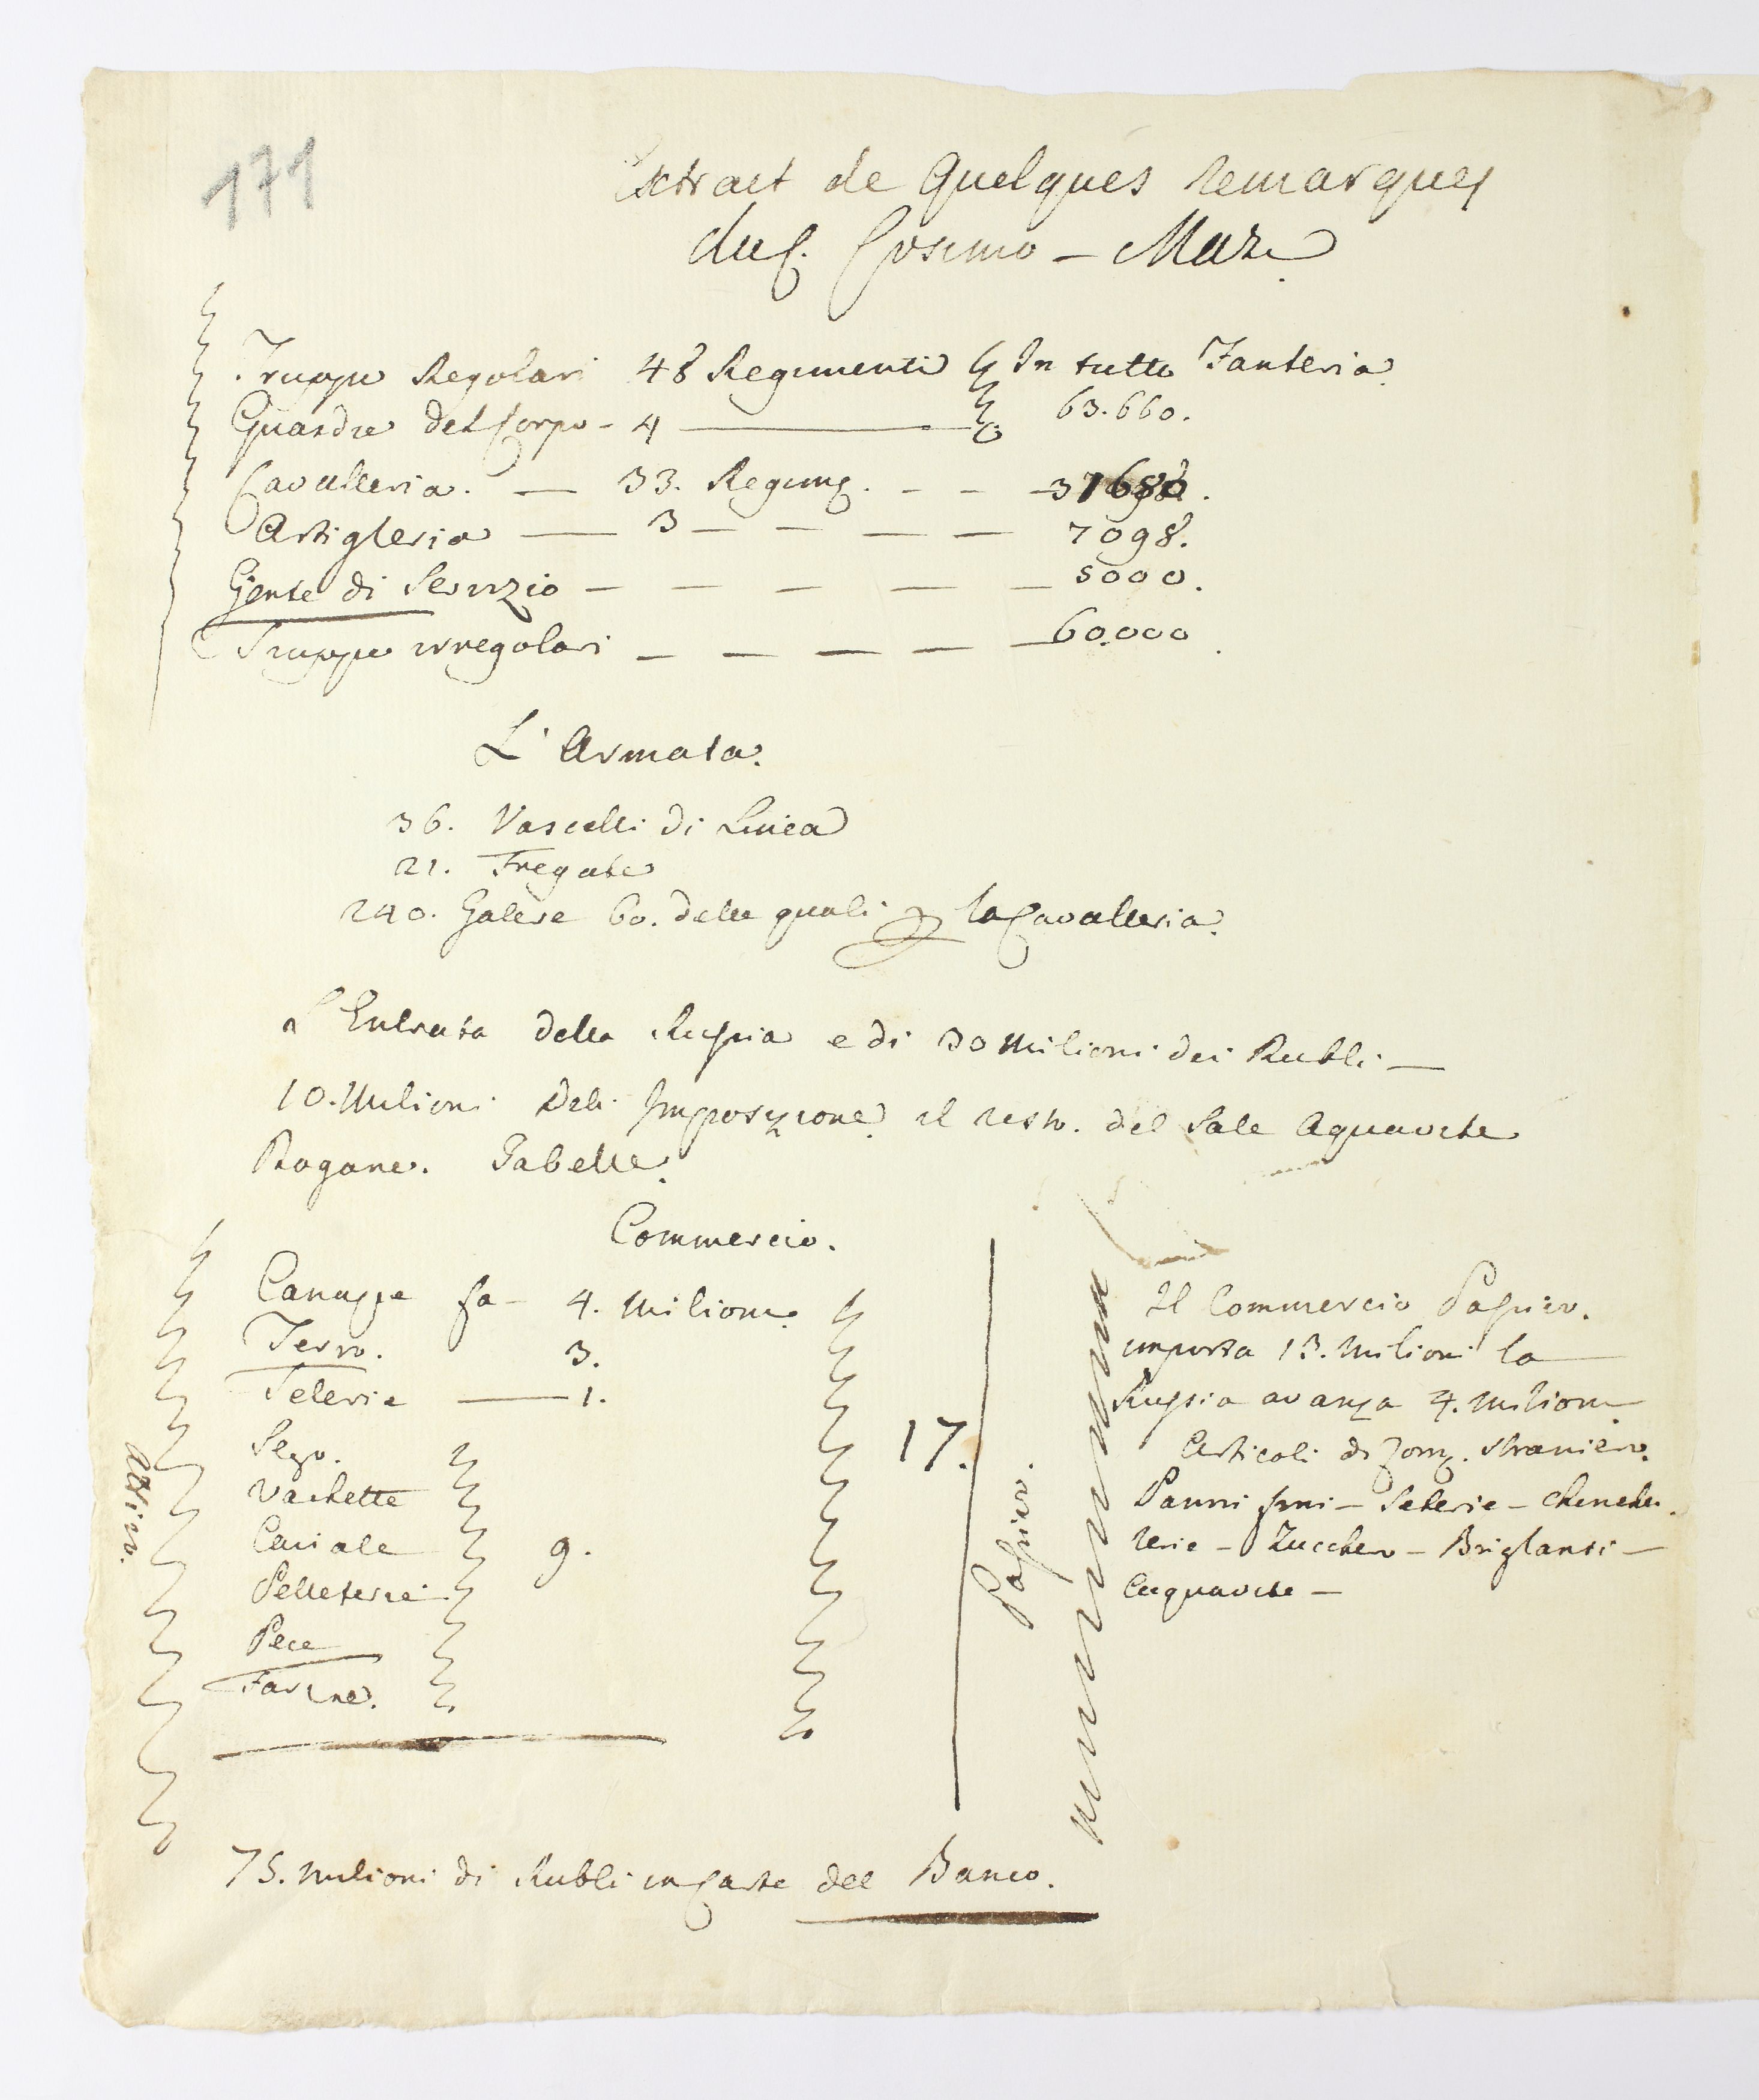 171
Extrait de Quelques remarques
du C. Cosimo – Mari
Truppe Regolari 48 Regimenti In tutto Fanteria
Guardie del Corpo – 4 — 63.660.
Cavalleria. — 33. Regim. – – – 37680.
Artigleria — 3 – – – – 7098.
Gente di Servizio – – – – – 5000.
Truppe irregolari – – – – – 60.000.
L'Armata.
36. Vascelli di Linea
21. Fregate
240. Galere 60. delle quali la Cavalleria.
L'Entrata della Russia e di 30 Milioni dei Rubli –
10. Milioni Deli Imposizione il resto. del Sale Aquavite
Dogane. Gabelle.
Commercio.
Canappe fa – 4. Milioni.
Ferro. 3.
Telerie — 1.
Sego.
Vachette
Caviale 9.
Pelleterie
Pece
Farine.
Attivo.
17.
Passivo.
Il Commercio Passivo.
importa 13. Milioni la
Russia avanza 4. Milioni
Articoli di Com. straniero.
Panni fini – Seterie –
rerie – Zucchero – Briglanti –
Aquavite –
75. Milioni di Rubli in Carte del Banco.